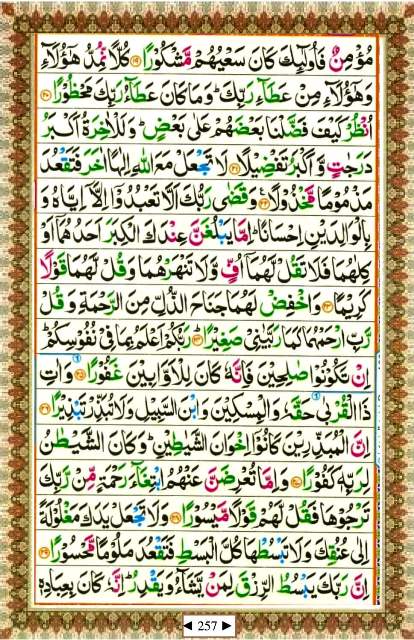 مُؤْمِنٌ فَاُولٰٓئِكَ كَانَ سَعْيُهُمْ مَّشْكُوْرًا ﴿۱۹﴾ كُلًّا نُّمِدُّ هٰٓؤُلَآءِ
وَهٰٓؤُلَآءِ مِنْ عَطَآءِ رَبِّكَ ؕ وَمَا كَانَ عَطَآءُ رَبِّكَ مَحْظُوْرًا ﴿۲۰﴾
اُنْظُرْ كَيْفَ فَضَّلْنَا بَعْضَهُمْ عَلٰى بَعْضٍ ؕ وَلَلْاٰخِرَةُ اَكْبَرُ
دَرَجٰتٍ وَّاَكْبَرُ تَفْضِيْلًا ﴿۲۱﴾ لَا تَجْعَلْ مَعَ اللّٰهِ اِلٰهًا اٰخَرَ فَتَقْعُدَ
مَذْمُوْمًا مَّخْذُوْلًا ﴿۲۲﴾ وَقَضٰى رَبُّكَ اَلَّا تَعْبُدُوْۤا اِلَّاۤ اِيَّاهُ وَ
بِالْوَالِدَيْنِ اِحْسَانًا ؕ اِمَّا يَبْلُغَنَّ عِنْدَكَ الْكِبَرَ اَحَدُهُمَاۤ اَوْ
كِلٰهُمَا فَلَا تَقُلْ لَّهُمَاۤ اُفٍّ وَّلَا تَنْهَرْهُمَا وَقُلْ لَّهُمَا قَوْلًا
كَرِيْمًا ﴿۲۳﴾ وَاخْفِضْ لَهُمَا جَنَاحَ الذُّلِّ مِنَ الرَّحْمَةِ وَقُلْ
رَّبِّ ارْحَمْهُمَا كَمَا رَبَّيٰنِيْ صَغِيْرًا ﴿۲۴﴾ رَبُّكُمْ اَعْلَمُ بِمَا فِيْ نُفُوْسِكُمْ ؕ
اِنْ تَكُوْنُوْا صٰلِحِيْنَ فَاِنَّهٗ كَانَ لِلْاَوَّابِيْنَ غَفُوْرًا ﴿۲۵﴾ وَاٰتِ
ذَا الْقُرْبٰى حَقَّهٗ وَالْمِسْكِيْنَ وَابْنَ السَّبِيْلِ وَلَا تُبَذِّرْ تَبْذِيْرًا ﴿۲۶﴾
اِنَّ الْمُبَذِّرِيْنَ كَانُوْۤا اِخْوَانَ الشَّيٰطِيْنِ ؕ وَكَانَ الشَّيْطٰنُ
لِرَبِّهٖ كَفُوْرًا ﴿۲۷﴾ وَاِمَّا تُعْرِضَنَّ عَنْهُمُ ابْتِغَآءَ رَحْمَةٍ مِّنْ رَّبِّكَ
تَرْجُوْهَا فَقُلْ لَّهُمْ قَوْلًا مَّيْسُوْرًا ﴿۲۸﴾ وَلَا تَجْعَلْ يَدَكَ مَغْلُوْلَةً
اِلٰى عُنُقِكَ وَلَا تَبْسُطْهَا كُلَّ الْبَسْطِ فَتَقْعُدَ مَلُوْمًا مَّحْسُوْرًا ﴿۲۹﴾
اِنَّ رَبَّكَ يَبْسُطُ الرِّزْقَ لِمَنْ يَّشَآءُ وَيَقْدِرُ ؕ اِنَّهٗ كَانَ بِعِبَادِهٖ
◄ 257 ►